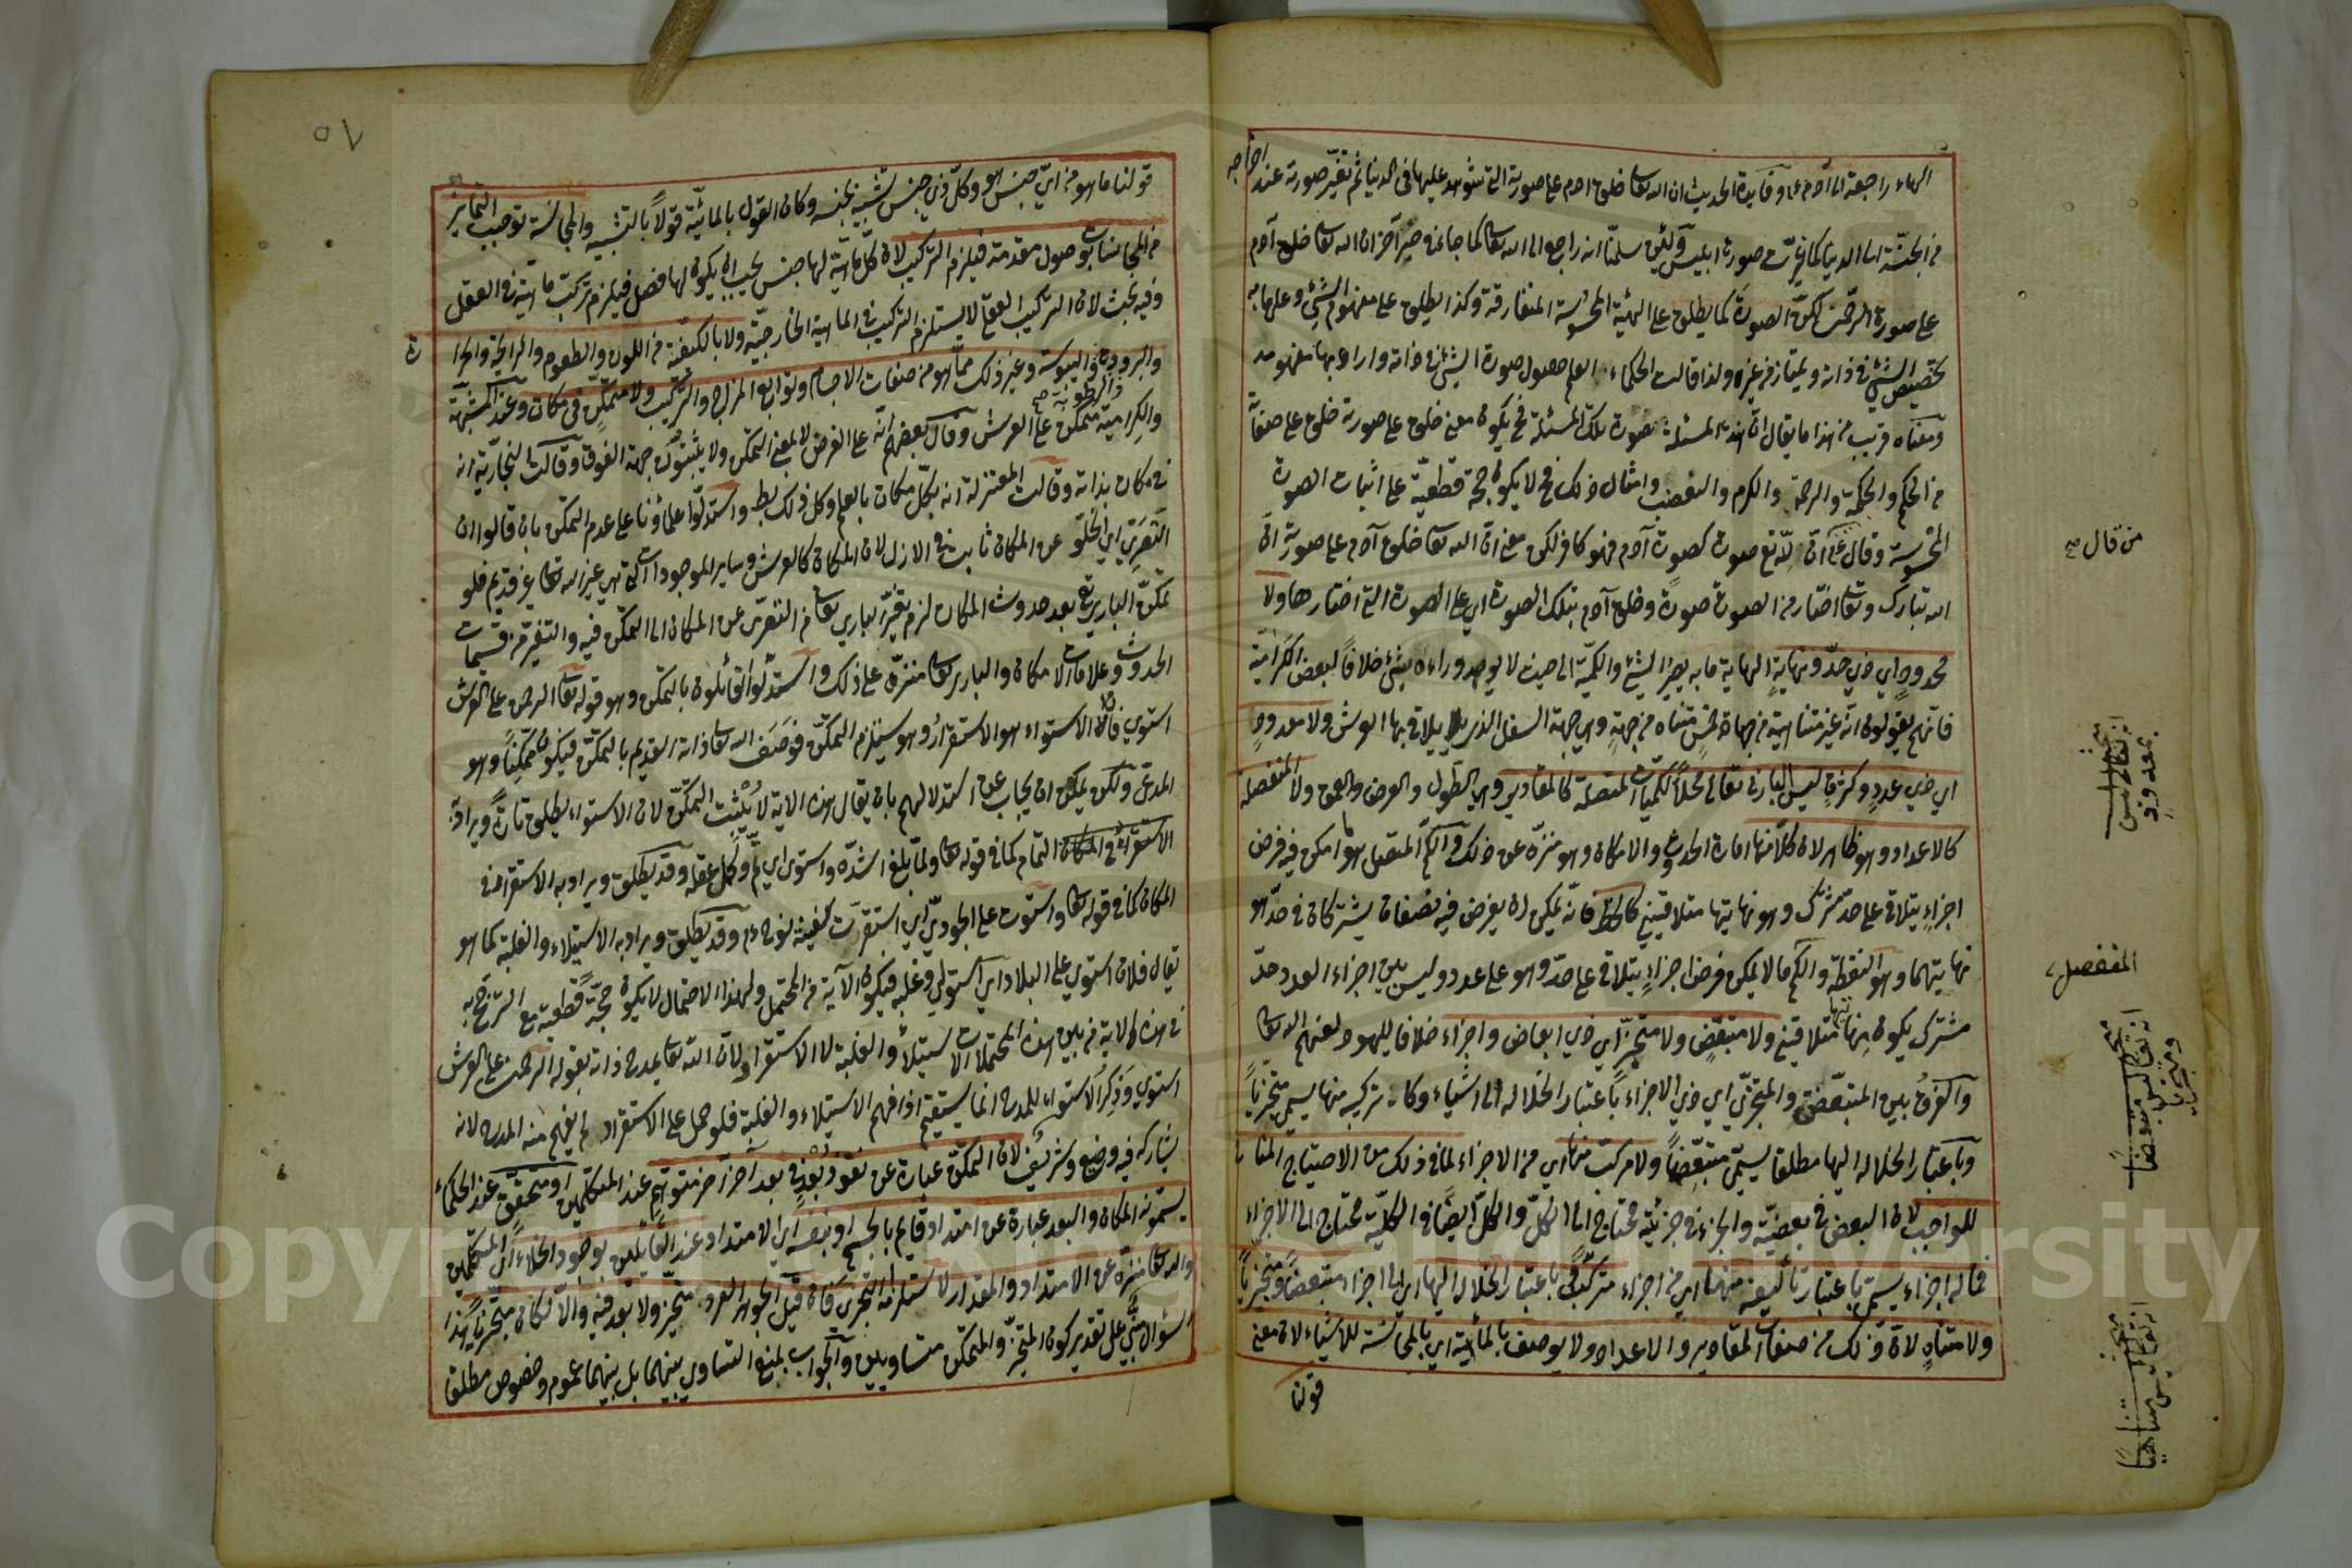 الهاء راجعة الى آدم ع م وفائدة الحديث ان الله تعا خلق ادم على صورته التي شوهد عليها في الدنيا ثم تغير صورته عند اخراجه
من الجنة الى الدنيا كما تغيرت صورة ابليس ولئن سلمنا انه راجع الى الله تعا كما جاء في خبر آخر ان الله تعا خلق آدم
على صورة الرحمن لكن الصورة كما يطلق على الهيئة المحسوسة المتفارقة وكذا يطلق على مفهوم الشيء وعلى ما به
تخصيص الشيء في ذاته ويمتاز من غيره ولذا قالت الحكماء العلم حصول صورة الشيء في ذاته وارادوا بها مفهومه
ومعناه قريب من هذا ما يقال ان هذه المسئلة بصورة تلك المسئلة فح يكون معنى خلق على صورته خلق على صفاته
من الحكم والحكمة والرحمة والكرم والغضب وامثال ذلك فح لا يكون حجة قطعية على اثبات الصورة
المحسوسة وقال ع م ان لله تع صورة كصورة آدم فهو كافر لكن معنى ان الله تعا خلق آدم على صورته ان
الله تبارك وتعا اختار من الصور صورة وخلق آدم بتلك الصورة اي على الصورة التي اختارها ولا
محدود اي ذي حد ونهاية النهاية ما به يصير الشيء والكمية الى حيث لا يوجد وراءه شيء خلافا لبعض الكرامية
فانهم يقولون انه غير متناهية من جهات خمس متناه من جهة وهي جهة السفل الذي يلاقي بها العرش ولا معدود
اي ذي عدد وكثرة ليس الباري تعالى محلا للكميات المتصلة كالمقادير وهي الطول والعرض والعمق ولا المنفصلة
كالاعداد وهو ظاهر لان كلا منها امارة الحدوث والامكان وهو منزه عن ذلك والكم المتصل هو ما امكن فيه فرض
اجزاء يتلاقى على حد مشترك وهو نهايتها متلاقيين كالخط فانه يمكن ان يفرض فيه نصفان يشتركان في حد هو
نهايتهما وهو النقطة والكم ما لا يمكن فرض اجزاء يتلاقى على حد وهو على عدد وليس بين اجزاء العدد حد
مشترك يكون نهايتها متلاقيين ولا متبعض ولا متجز اي ذي ابعاض واجزاء خلافا لليهود لعنهم الله تعا
والفرق بين المتبعض والمتجزي اي ذي الاجزاء باعتبار انحلاله الى اشياء وكان تركيبه منها يسمى متجزيا
وباعتبار انحلاله اليها مطلقا يسمى متبعضا ولا مركب منها اي من الاجزاء لما في ذلك من الاحتياج المنافي
للواجب لان البعض في بعضيته والجزء في جزئيته محتاج الى الكل والكل ايضا في الكلية محتاج الى الاجزاء
فما له اجزاء يسمى باعتبار تأليفه منها اي من اجزاء متركبا وباعتبار انحلاله اليها اي الى اجزاء متبعضا ومتجزيا
ولا متناه لان ذلك من صفات المقادير والاعداد ولا يوصف بالمائية اي بالمجانسة للاشياء لان معنى
قولنا
من قال صح
المنفصل
انه تعالى ليس
بمعدود
انه تعالى ليس متبعضا
ومتجزيا
انه تعالى ليس متناهيا
٥٧
قولنا ما هو من اي جنس هو وكل ذي جنس شبيه بجنسه وكان القول بالمائية قولا بالتشبيه والمجانسة توجب التمايز
من المجانسات بفصول مقدمة فيلزم التركيب لان كل ماهية لها جنس يجب ان يكون لها فصل فيلزم تركب ماهيته في العقل
وفيه بحث لان التركيب العقلي لا يستلزم التركيب في الماهية الخارجية ولا بالكيفية من اللون والطعوم والرايحة والحرارة
والبرودة والرطوبة صح واليبوسة وغير ذلك مما هو من صفات الاجسام وتوابع المزاج والتركيب ولا متمكن في مكان وعند المشبهة
والكرامية متمكن على العرش وقال بعضهم انه على العرش لا بمعنى التمكن ولا يثبتون جهة الفوق وقالت النجارية انه
في مكان بذاته وقالت المعتزلة انه بكل مكان بالعلم وكل ذلك بط واستدلوا علماؤنا على عدم التمكن بان قالوا ان
التعري اي الخلو عن المكان ثابت في الازل لان المكان كالعرش وساير الموجودات التي هي غير الله تعا غير قديم فلو
تمكن الباري تع بعد حدوث المكان لزم تغير الباري تعا من التعري عن المكان الى التمكن فيه والتغير من سمات
الحدوث وعلامات الامكان والباري تعا منزه على ذلك واستدلوا القائلون بالتمكن وهو قوله تعا الرحمن على العرش
استوي فان الاستواء هو الاستقرار وهو يستلزم التمكن فوصف الله تعا ذاته القديم بالتمكن فيكون متمكنا وهو
المدعى ولكن يمكن ان يجاب عن استدلالهم بان يقال هذه الاية لا يثبت التمكن لان الاستواء يطلق تارة ويراد به
الاستقراء في المكان التمام كما في قوله تعا ولما بلغ اشده واستوى اي تم وكمل عقله وقد يطلق ويراد به الاستقرار في
المكان كما في قوله تعا واستوت على الجودي اي استقرت سفينة نوح ع م وقد يطلق ويراد به الاستيلاء والغلبة كما هو
يقال فلان استوي على البلاد اي استولى وغلبه فيكون الآية من المحتمل ولهذا الاحتمال لا يكون حجة قطعية مع الترجيح به
في هذه الاية من بين هذه المحتملات الاستيلاء والغلبة لا الاستقرار ولان الله تعا يمدح ذاته بقوله الرحمن على العرش
استوي وذكر الاستواء للمدح انما يستقيم اذا فهم الاستيلاء والغلبة فلو حمل على الاستقرار لم يفهم منه المدح لانه
يشاركه فيه وضيع وشريف لان التمكن عبارة عن نفوذ بعد في بعد آخر متوهم عند المتكلمين او متحقق عند الحكماء
يسمونه المكان والبعد عبارة عن امتداد قايم بالجسم او بنفسه اي الامتداد عند القايلين بوجود الخلاء اي المتكلمين
والله تعا منزه عن الامتداد والمقدار لاستلزامه التجزي فان قيل الجوهر الفرد متحيز ولا بعد فيه والا لكان متجزيا هذا
السؤال مبني على تقدير كون المتحيز والمتمكن متساويين والجواب بمنع التساوي بينهما بل بينهما عموم وخصوص مطلقا